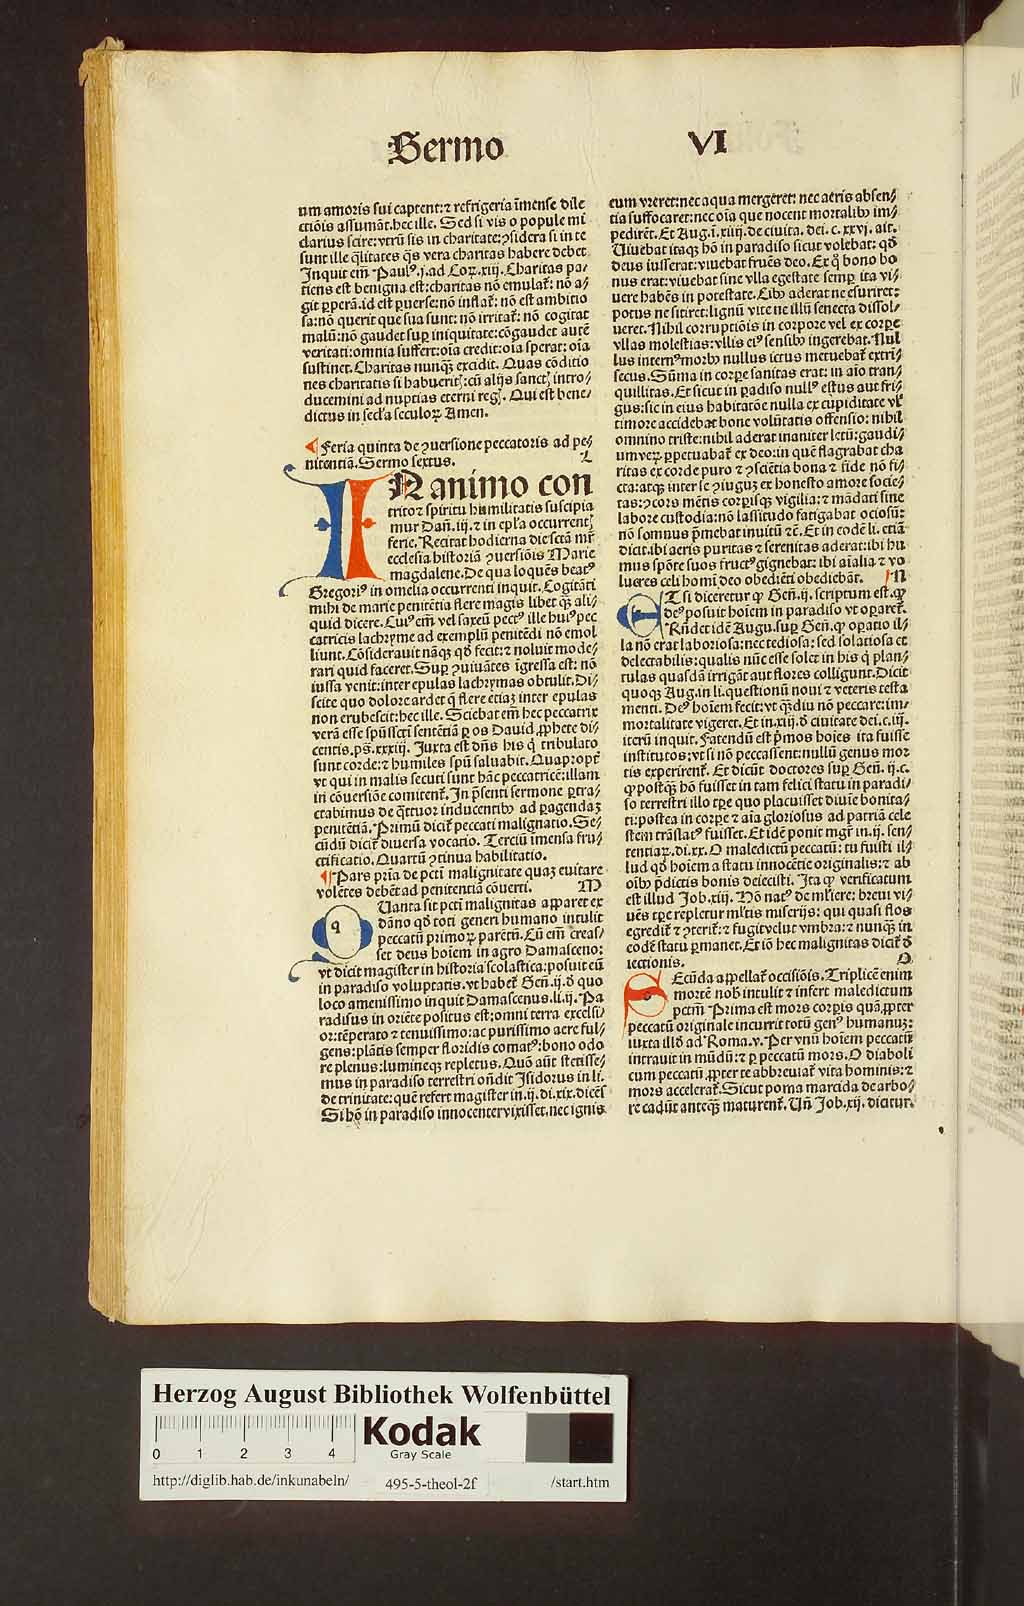 Sermo VI
um amoris sui captent: ⁊ refrigeria īmense dile
ctiōis assumāt. hec ille. Sed si vis o popule mi
darius scire: vtrū sis in charitate: ↄsidera si in te
sunt ille q̄litates q̄s vera charitas habere debet
Inquit em̄ Paulꝰ .j. ad Coꝝ. xiij. Charitas pa/
tiens est benigna est: charitas nō emulat̄: nō a/
git ꝑperā. id est ꝑuerse: nō inflat̄: nō est ambitio
sa: nō querit que sua sunt: nō irritat̄: nō cogitat
malū: nō gaudet sup̄ iniquitate: cōgaudet autē
veritati: omnia suffert: oīa credit: oīa sperat: oīa
sustinet. Charitas nunq̄ꝫ excidit. Quas cōditio
nes charitatis si habueritꝭ: cū alijs sanctꝭ intro/
ducemini ad nuptias eterni regꝭ. Qui est bene/
dictus in secl̄a seculoꝝ Amen.
¶ Feria quinta de ↄuersione peccatoris ad pe/
nitentiā. Sermo sextus. L
IN animo con
trito ⁊ spiritu humilitatis suscipia
mur Dan̄. iij. ⁊ in epl̄a occurrentꝭ
ferie. Recitat hodierna die sctā mr̄
ecclesia historiā ↄuersiōis Marie
magdalene. De qua loquēs beatꝰ
Gregoriꝰ in omelia occurrenti inquit. Cogitāti
mihi de marie penitētia flere magis libet q̄ꝫ ali/
quid dicere. Cuiꝰ em̄ vel saxeū pectꝰ ille huiꝰ pec
catricis lachryme ad exemplū penitēdi nō emol
liunt. Cōsiderauit nāqꝫ qd̄ fecit: ⁊ noluit mode/
rari quid faceret. Sup̄ ↄuiuātes īgressa est: nō
iussa venit: inter epulas lachrymas obtulit. Di/
scite quo dolore ardet q̄ flere etiaꝫ inter epulas
non erubescit: hec ille. Sciebat em̄ hec peccatrix
verā esse spūssctī sentētiā ꝑ os Dauid ꝓphete di/
centis. ps̄. xxxiij. Juxta est dn̄s his q̄ tribulato
sunt corde: ⁊ humiles spū saluabit. Quapropt̄
vt qui in malis secuti sunt hāc peccatricē: illam
in cōuersiōe comitent̄. In p̄senti sermone ꝑtra/
ctabimus de q̄ttuor inducentibꝰ ad ꝑagendaꝫ
penitētiā. Primū dicit̄ peccati malignatio. Se/
cūdū dicit̄ diuersa vocatio. Terciū imensa fru/
ctificatio. Quartū ↄtinua habilitatio.
¶ Pars pr̄ia de pctī malignitate quaꝫ euitare
volētes debēt ad penitentiā cōuerti. M
QUanta sit pctī malignitas apparet ex
dāno qd̄ toti generi humano intulit
peccatū primoꝝ parētū. Cū em̄ creas/
set deus hoīem in agro Damasceno:
vt dicit magister in historia scolastica: posuit eū
in paradiso voluptatis. vt habet̄ Gen̄. ij. đ quo
loco amenissimo inquit Damascenus. li. ij. Pa
radisus in oriēte positus est: omni terra excelsi/
or: tēperato ⁊ tenuissimo: ac purissimo aere ful/
gens: plātis semper floridis comatꝰ: bono odo
re plenus: lumineqꝫ repletus. Quō aūt stetisse/
mus in paradiso terrestri on̄dit Isidorus in li.
de trinitate: quē refert magister in. ij. di. xix. dicēs
Si hō in paradiso innocenter vixisset. nec ignis
eum vreret: nec aqua mergeret: nec aeris absen/
tia suffocaret: nec oīa que nocent mortalibꝰ im/
pedirēt. Et Aug. ī. xiiij. de ciuita. dei. c. xxvj. ait.
Uiuebat itaqꝫ hō in paradiso sicut volebat: qd̄
deus iusserat: viuebat fruēs deo. Ex q̄ bono bo
nus erat: viuebat sine vlla egestate semp̄ ita vi/
uere habēs in potestate. Cibꝰ aderat ne esuriret:
potus ne sitiret: lignū vite ne illū senecta dissol/
ueret. Nihil corruptiōis in corpore vel ex corꝑe
vllas molestias: vllis eiꝰ sensibꝰ ingerebat. Nul
lus internꝰ morbꝰ nullus ictus metuebat̄ extrī/
secus. Sūma in corꝑe sanitas erat: in aīo tran/
quillitas. Et sicut in ꝑadiso nullꝰ estus aut fri/
gus: sic in eius habitatōe nulla ex cupiditate vl̄
timore accidebat bone volūtatis offensio: nihil
omnino triste: nihil aderat inaniter letū: gaudi/
um veꝝ ꝑpetuabat̄ ex deo: in quē flagrabat cha
ritas ex corde puro ⁊ ↄsciētia bona ⁊ fide nō fi/
cta: atqꝫ inter se ↄiuguꝫ ex honesto amore socie/
tas: ↄcors mētis corꝑisqꝫ vigilia: ⁊ mādati sine
labore custodia: nō lassitudo fatigabat ociosū:
nō somnus p̄mebat inuitū ⁊c̄. Et in codē li. etiā
dicit. ibi aeris puritas ⁊ serenitas aderat: ibi hu
mus spōte suos fructꝰ gignebat: ibi aīalia ⁊ vo
lucres celi homī deo obediēti obediebāt. N
ETsi diceretur ꝙ Gen̄. ij. scriptum est. ꝙ
deꝰ posuit hoīem in paradiso vt oꝑaret̄.
Rn̄det idē Augu. sup̄ Gen̄. ꝙ oꝑatio il/
la nō erat laboriosa: nec tediosa: sed solatiosa et
delectabilis: qualis nūc esse solet in his q̄ plan/
tulas quasdā irrigāt aut flores colligunt. Dicit
quoqꝫ Aug. in li. questionū noui ⁊ veteris testa
menti. Deꝰ hoīem fecit: vt q̄ꝫdiu nō peccare: im/
mortalitate vigeret. Et in. xiij. đ ciuitate dei. c. iij.
iterū inquit. Fatendū est p̄mos hoīes ita fuisse
institutos: vt si nō peccassent: nullū genus mor
tis experirent̄. Et dicūt doctores sup̄ Gen̄. ij. c.
ꝙ postq̄ꝫ hō fuisset in tam felici statu in paradi/
so terrestri illo tꝑe quo placuisset diuīe bonita/
ti: postea in corꝑe ⁊ aīa gloriosus ad patriā cele
stem trāslatꝰ fuisset. Et idē ponit mgr̄ in. ij. sen/
tentiaꝝ. di. xx. O maledictū peccatū: tu fuisti il/
lud qd̄ hoīem a statu innocētie originalis: ⁊ ab
oībꝰ p̄dictis bonis deiecisti. Ita ꝙ verificatum
est illud Job. xiij. Hō natꝰ de ml̄iere: breui vi/
uēs tꝑe repletur ml̄tis miserijs: qui quasi flos
egredit̄ ⁊ ↄterit̄: ⁊ fugit velut vmbra: ⁊ nunq̄ꝫ in
codē statu ꝑmanet. Et iō hec malignitas dicit̄ đ
iectionis. O
SEcūda appellat̄ occisiōis. Triplicē enim
mortē nob̄ intulit ⁊ infert maledictum
pctm̄ Prima est mors corꝑis quā ꝓpter
peccatū originale incurrit totū genꝰ humanuꝫ:
iuxta illđ ad Roma. v. Per vnū hoīem peccatū
intrauit in mūdū: ⁊ ꝑ peccatū mors. O diaboli
cum peccatū ꝓpter te abbreuiat̄ vita hominis: ⁊
mors accelerat̄. Sicut poma marcida de arbo/
re cadūt anteq̄ꝫ maturent̄. Un̄ Job. xij. dicitur.
Herzog August Bibliothek Wolfenbüttel
0 1 2 3 4
Kodak
Gray Scale
http://diglib.hab.de/inkunabeln/ 495-5-theol-2f /start.htm